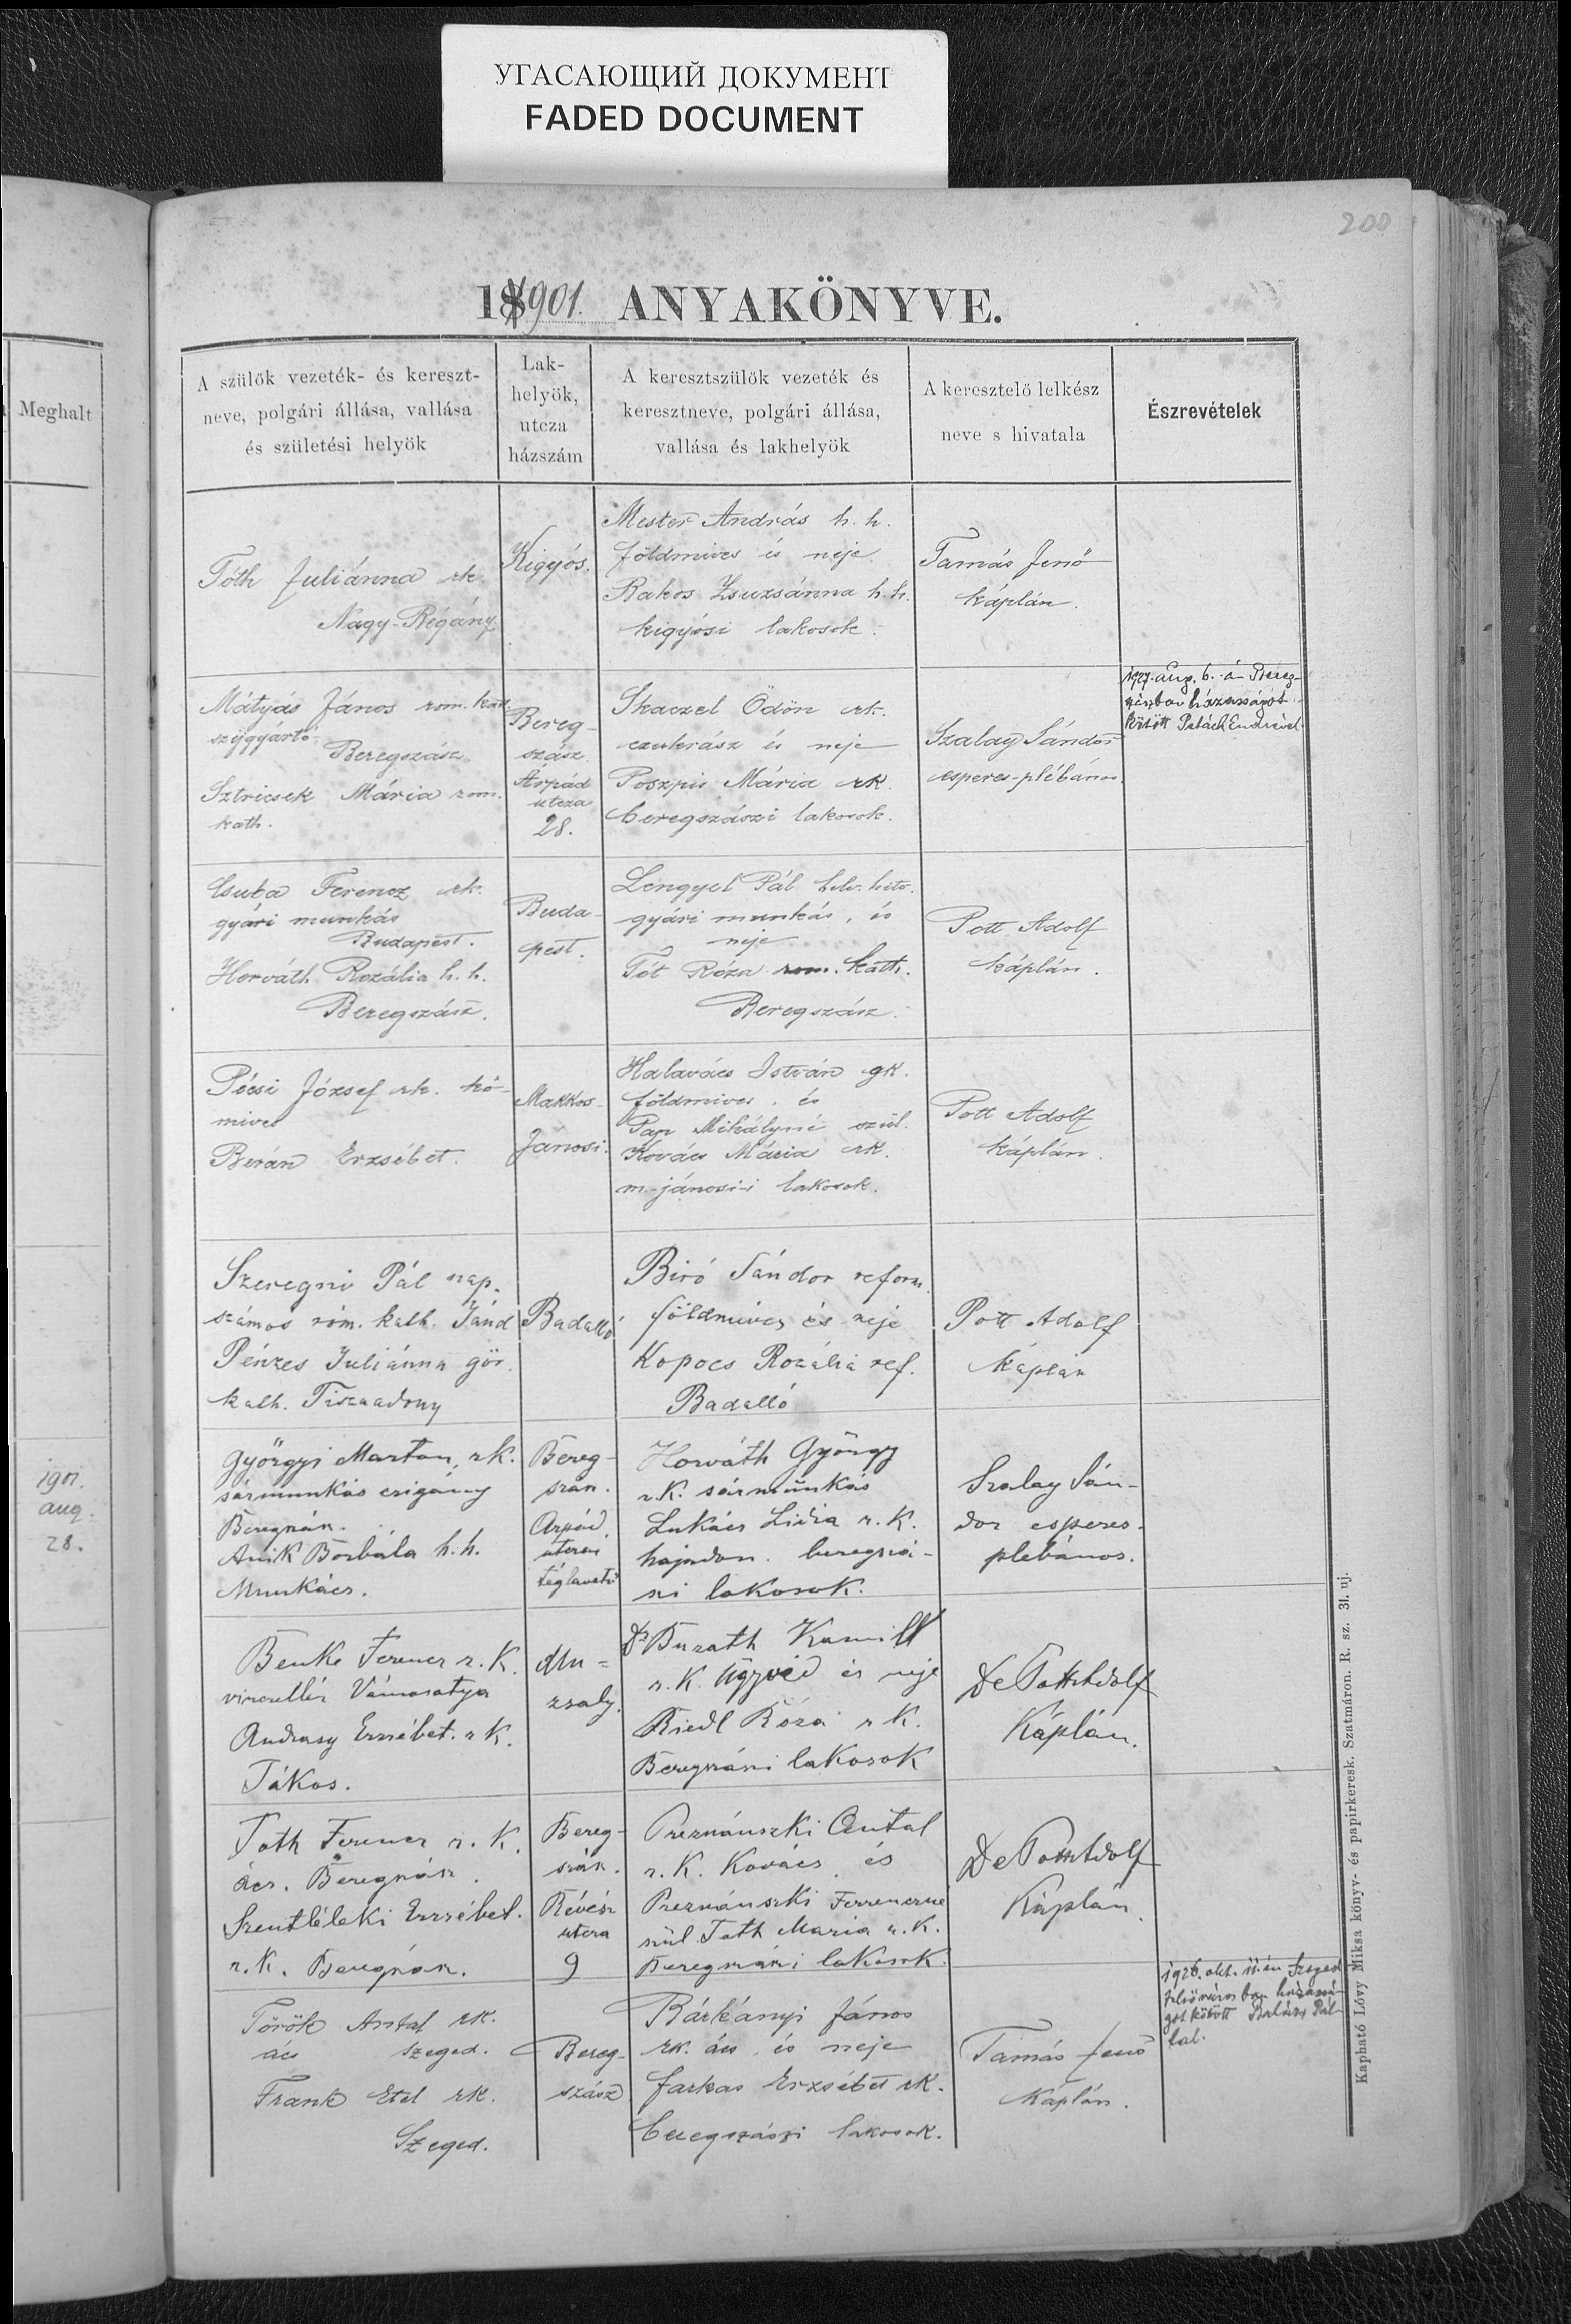 УГАСАЮЩИЙ ДОКУМЕНТ
FADED DOCUMENT
200
1901. ANYAKÖNYVE.
Meghalt
A szülök vezeték- és kereszt-
neve, polgári állása, vallása
és születési helyök
Lak-
helyök,
utcza
házszám
A keresztszülök vezeték és
keresztneve, polgári állása,
vallása és lakhelyök
A keresztelő lelkész
neve s hivatala
Észrevételek
Tóth Juliánna rk.
Nagy-Régány
Kigyós.
Mester András h. h.
földmives és neje
Bakos Zsuzsánna h. h.
kigyósi lakosok.
Tamás Jenő
káplán.
Mátyás János rom. kath.
szíjgyártó
Beregszász
Sztricsek Mária rom.
kath.
Bereg-
szász
Árpád
utcza
28.
Skaczel Ödön rk.
czukrász és neje
Poszpis Mária rk.
beregszászi lakosok.
Szalay Sándor
esperes-plébános.
aug. 6.-á Bereg-
szászban házasságot
kötött Endrével
Csuba Ferencz rk.
gyári munkás
Budapest.
Horváth Rozália h. h.
Beregszász.
Buda-
pest.
Lengyel Pál helv. hitv.
gyári munkás, és
neje
Tót Róza rom. kath.
Beregszász.
Pott Adolf
káplán.
Pécsi József rk. kő-
mives
Berán Erzsébet.
Makkos-
Jánosi.
Halavács István gk.
földmives, és
Pap Mihályné szül.
Kovács Mária rk.
m.-jánosi-i lakosok.
Pott Adolf
káplán.
Szeregni Pál nap-
számos róm. kath. Jánd
Pénzes Juliánna gör.
kath. Tiszaadony
Badalló
Biró Sándor reform.
földmives és neje
Kopocs Rozália ref.
Badalló
Pott Adolf
káplán
1901.
aug.
28.
Györgyi Marton, r.k.
sármunkás czigány
Beregszász.
Anik Borbála h. h.
Munkács.
Bereg-
szász.
Árpád
utcza
téglavető
Horváth György
r. K. sármunkás
Lukács Lidia r. K.
hajadon. beregszá-
szi lakosok.
Szalay Sán-
dor esperes-
plébános.
Benke Ferencz r. K.
vinczellér Vámosatya
Andrasy Erzsébet. r K.
Tákos.
Mu=
zsaly.
Dr Kamill
r. K. ügyvéd és neje
Riedl Róza r K.
Beregszászi lakosok
De Pott Adolf
Káplán.
Toth Ferencz r. K.
ács. Beregszász.
Szentléleki Erzsébet.
r. K. Beregszász.
Bereg-
szász.
Révész
utcza
9
Preznánszki Antal
r. K. Kovács és
Preznánszki Ferenczné
szül. Toth Maria r. K.
Beregszászi lakosok.
De Pott Adolf
Káplán.
Török Antal rk.
ács Szeged.
Frank Etel rk.
Szeged.
Bereg-
szász
Bárkányi János
rk. ács, és neje
Farkas Erzsébet rk.
beregszászi lakosok.
Tamás Jenő
Káplán.
1926. okt. 11.-én Szeged
Felsőváros ban házassá-
got kötött Balázs Pál-
lal.
Kapható Lővy Miksa könyv- és papirkeresk. Szatmáron. R. sz. 31. uj.